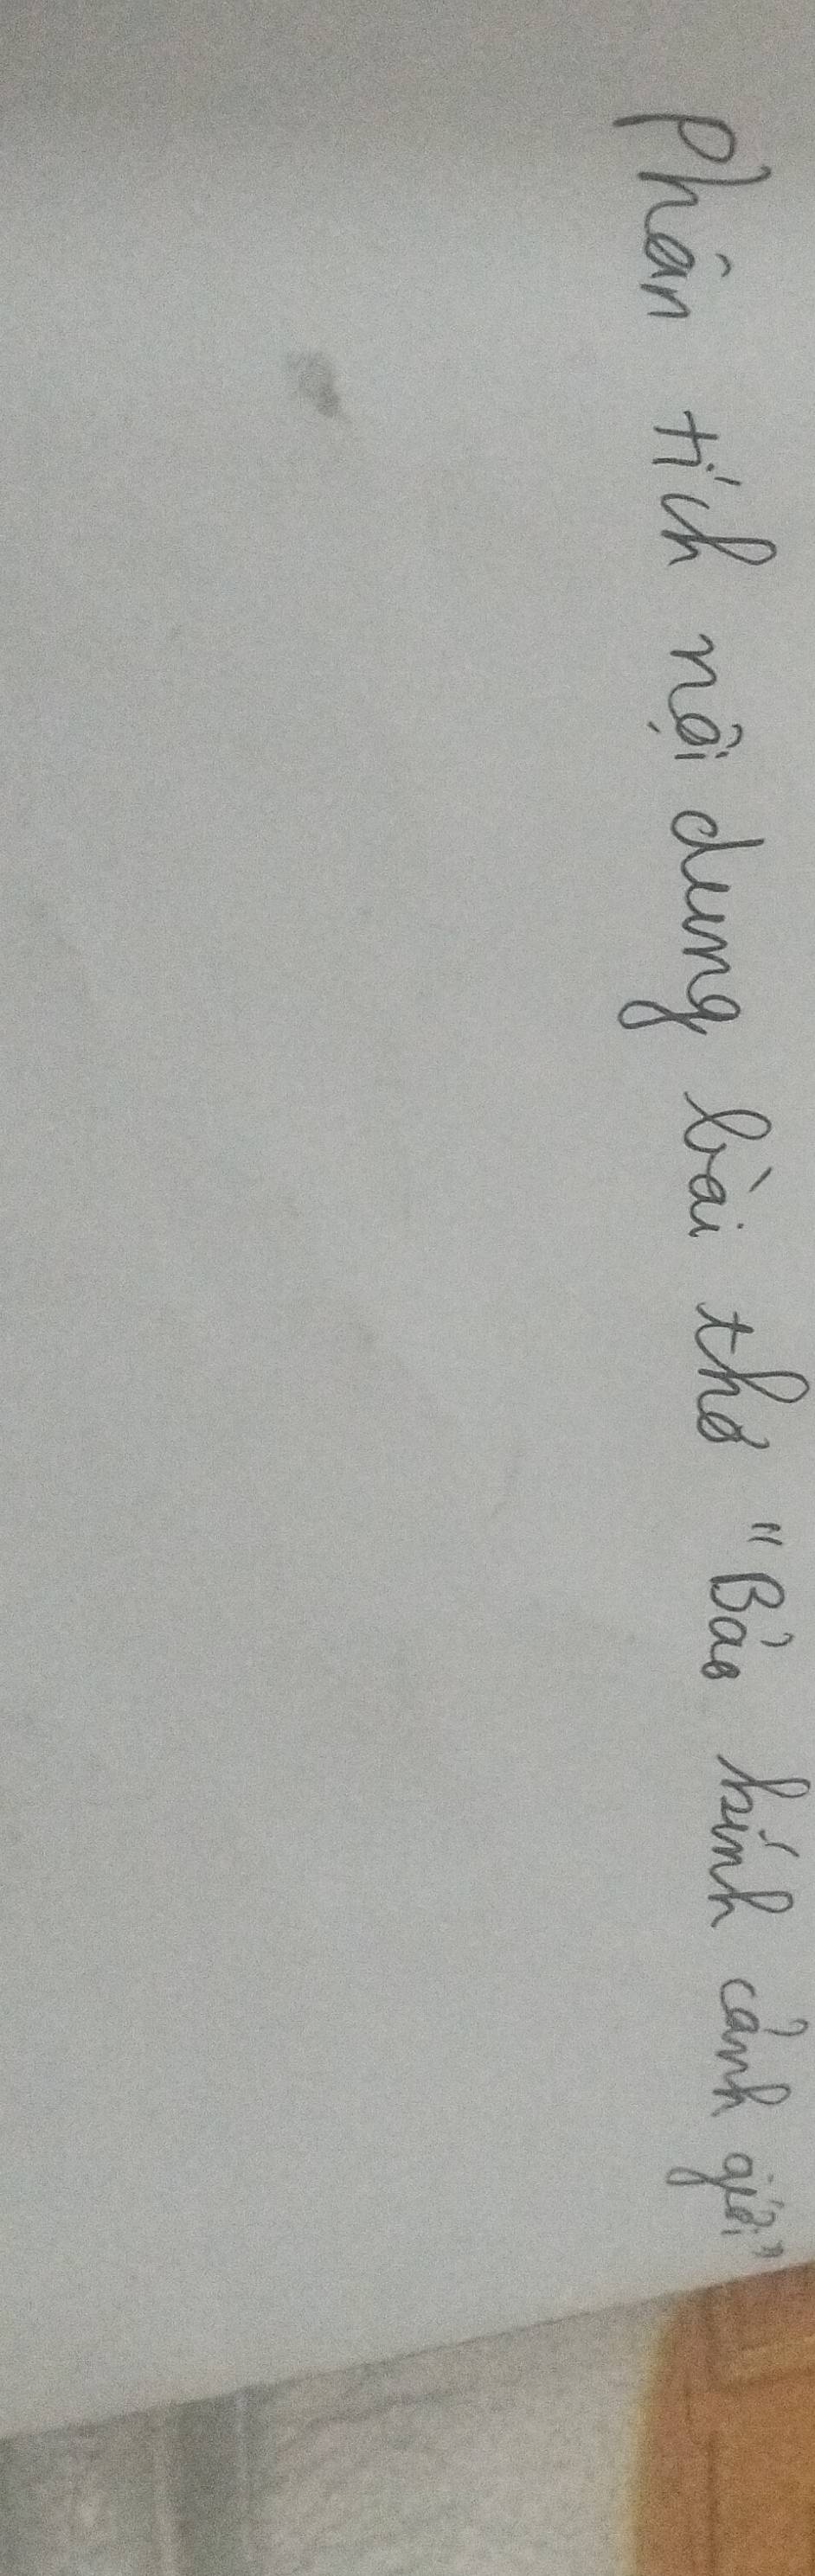 Phân tích nội dung bài thơ "Bảo kính cảnh giới"